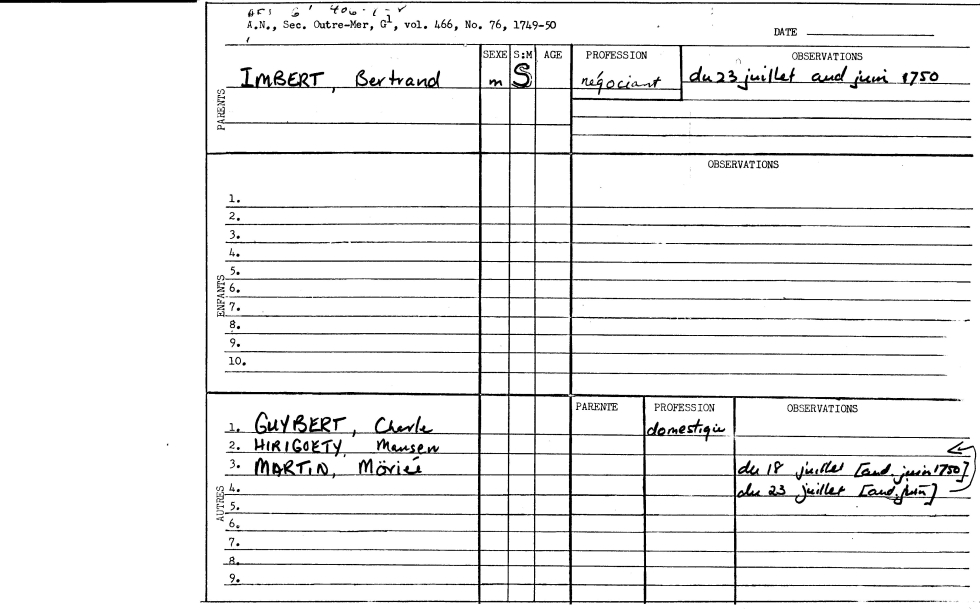 A.N., Sec. Outre-Mer, G1, vol. 466, No. 76, 1749-50
DATE
SEXE S:M AGE PROFESSION OBSERVATIONS
PARENTS
IMBERT, Bertrand m S négociant du 23 juillet and juin 1750
OBSERVATIONS
ENFANTS
1.
2.
3.
4.
5.
6.
7.
8.
9.
10.
PARENTE PROFESSION OBSERVATIONS
AUTRES
1. GUYBERT, Charle domestique
2. HIRIGOETY, Mansen
3. MARTIN, du 18 juillet [and juin 1750]
4. du 23 juillet [and juin]
5.
6.
7.
8.
9.